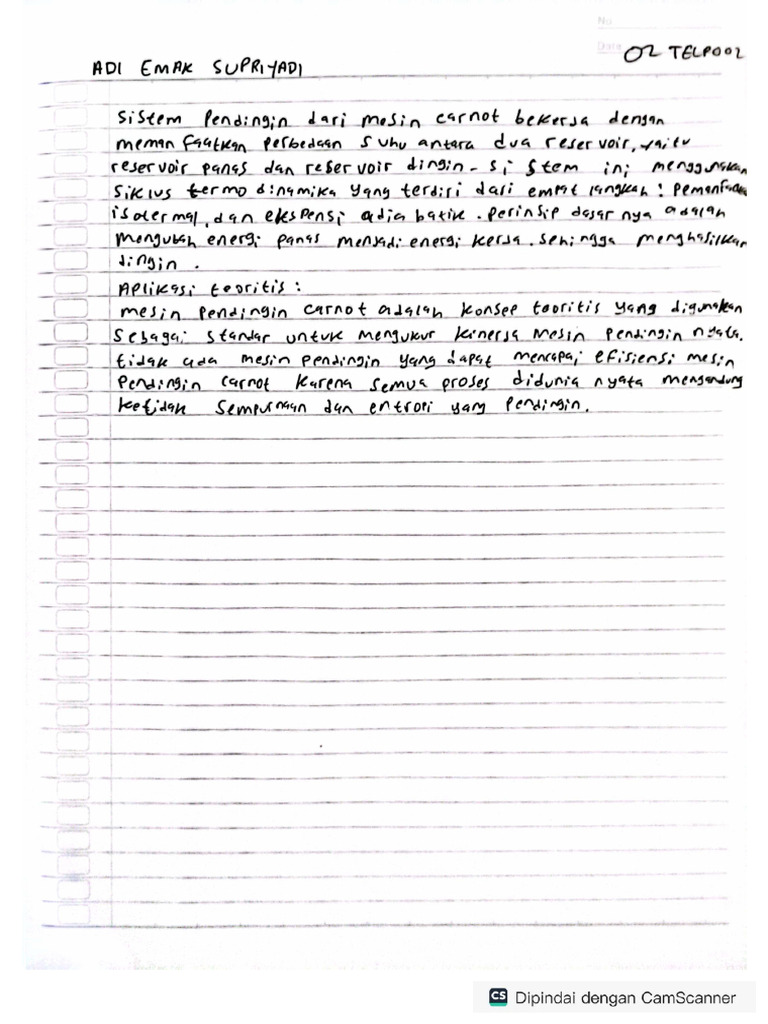 No
Date
02 TELP002
ADI EMAK SUPRIYADI
Sistem Pendingin dari mesin carnot bekerja dengan
meman faatkan perbedaan suhu antara dua reservoir, yaitu
reservoir panas dan reservoir dingin - Sistem ini menggunakan
Siklus termo dinamika yang terdiri dari empat langkah : Pemanfaatan
isotermal, dan ekspensi adia batik . perinsip dasar nya adalah
mengubah energi panas menjadi energi kerja . sehingga menghasilkan
dingin .
Aplikasi teoritis :
mesin pendingin carnot adalah konsep tooritis yang digunakan
Sebagai standar untuk mengukur kinerja mesin pendingin nyata.
tidak ada mesin pendingin yang dapat mencapai efisiensi mesin
pendingin carnot karena semua proses didunia nyata mengandung
ketidak sempurnaan dan entropi yang pendingin.
CS Dipindai dengan CamScanner